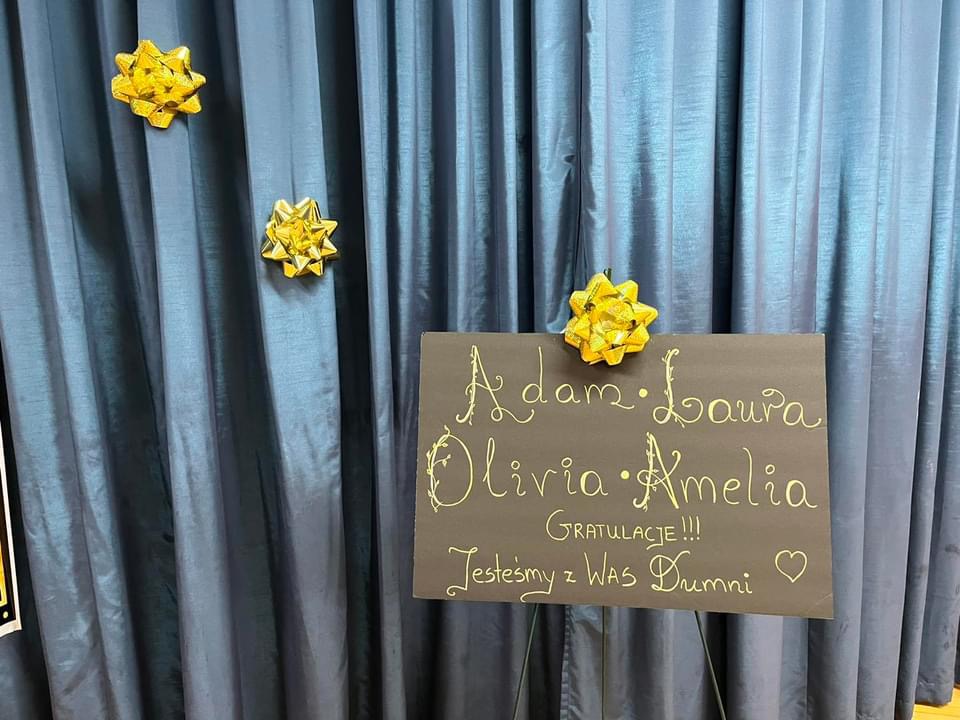 Adam • Laura
Olivia • Amelia
GRATULACJE!!!
Jesteśmy z WAS Dumni ♡